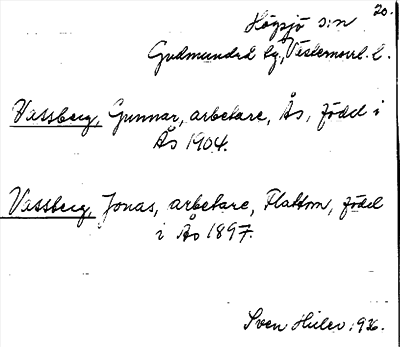 20.
Högsjö s:n
Gudmundrå tg, Västernorrl. l.
Vassberg, Gunnar, arbetare, Ås, född i
Ås 1904.
Vassberg, Jonas, arbetare, Flattom, född
i Ås 1897.
Sven Hulev 1936.